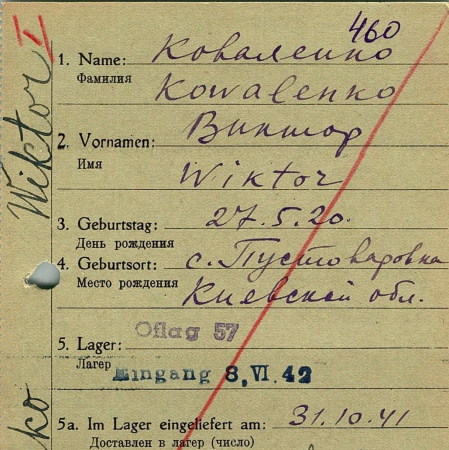 460
I
Wiktor
ko
1. Name: Коваленко
Фамилия
Kowalenko
2. Vornamen: Виктор
Имя
Wiktor
3. Geburtstag: 27.5.20.
День рождения
4. Geburtsort: с. Пустоваровка
Место рождения
Киевской обл.
5. Lager: Oflag 57
Лагер
Eingang 8. VI. 42
5a. Im Lager eingeliefert am: 31.10.41
Доставлен в лагер (число)